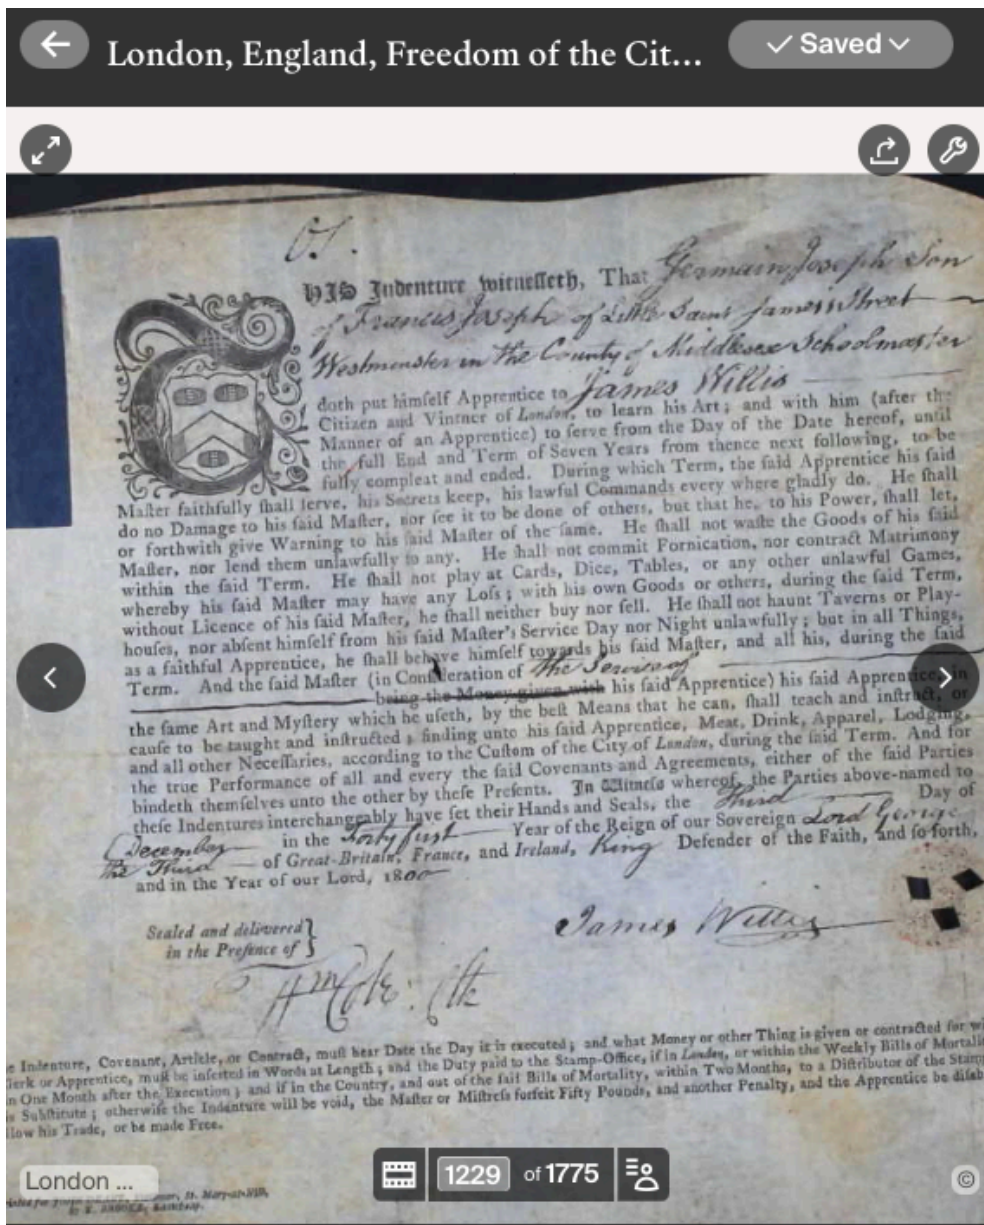 London, England, Freedom of the Cit...
Saved
THIS Indenture witnesseth, That Germain Joseph Son
of Francis Joseph of Little Saint James's Street
Westminster in the County of Middlesex Schoolmaster
doth put himself Apprentice to James Willis
Citizen and Vintner of London, to learn his Art; and with him (after the
Manner of an Apprentice) to serve from the Day of the Date hereof, until
the full End and Term of Seven Years from thence next following, to be
fully compleat and ended. During which Term, the said Apprentice his said
Master faithfully shall serve, his Secrets keep, his lawful Commands every where gladly do. He shall
do no Damage to his said Master, nor see it to be done of others, but that he, to his Power, shall let,
or forthwith give Warning to his said Master of the same. He shall not waste the Goods of his said
Master, nor lend them unlawfully to any. He shall not commit Fornication, nor contract Matrimony
within the said Term. He shall not play at Cards, Dice, Tables, or any other unlawful Games,
whereby his said Master may have any Loss; with his own Goods or others, during the said Term,
without Licence of his said Master, he shall neither buy nor sell. He shall not haunt Taverns or Play-
houses, nor absent himself from his said Master's Service Day nor Night unlawfully; but in all Things,
as a faithful Apprentice, he shall behave himself towards his said Master, and all his, during the said
Term. And the said Master (in Consideration of the Service of
being the Money given with his said Apprentice) his said Apprentice, in
the same Art and Mystery which he useth, by the best Means that he can, shall teach and instruct, or
cause to be taught and instructed; finding unto his said Apprentice, Meat, Drink, Apparel, Lodging,
and all other Necessaries, according to the Custom of the City of London, during the said Term. And for
the true Performance of all and every the said Covenants and Agreements, either of the said Parties
bindeth themselves unto the other by these Presents. In Witness whereof, the Parties above-named to
these Indentures interchangeably have set their Hands and Seals, the Third Day of
December in the Forty first Year of the Reign of our Sovereign Lord George
the Third of Great-Britain, France, and Ireland, King Defender of the Faith, and so forth,
and in the Year of our Lord, 1800
James Willis
Sealed and delivered
in the Presence of
Indenture, Covenant, Article, or Contract, must bear Date the Day it is executed; and what Money or other Thing is given or contracted for
or Apprentice, must be inserted in Words at Length; and the Duty paid to the Stamp-Office, if in London, or within the Weekly Bills of
One Month after the Execution; and if in the Country, and out of the said Bills of Mortality, within Two Months, to a Distributor of the
Substitute; otherwise the Indenture will be void, the Master or Mistress forfeit Fifty Pounds, and another Penalty, and the Apprentice be
his Trade, or be made Free.
1229 of 1775
London ...
©